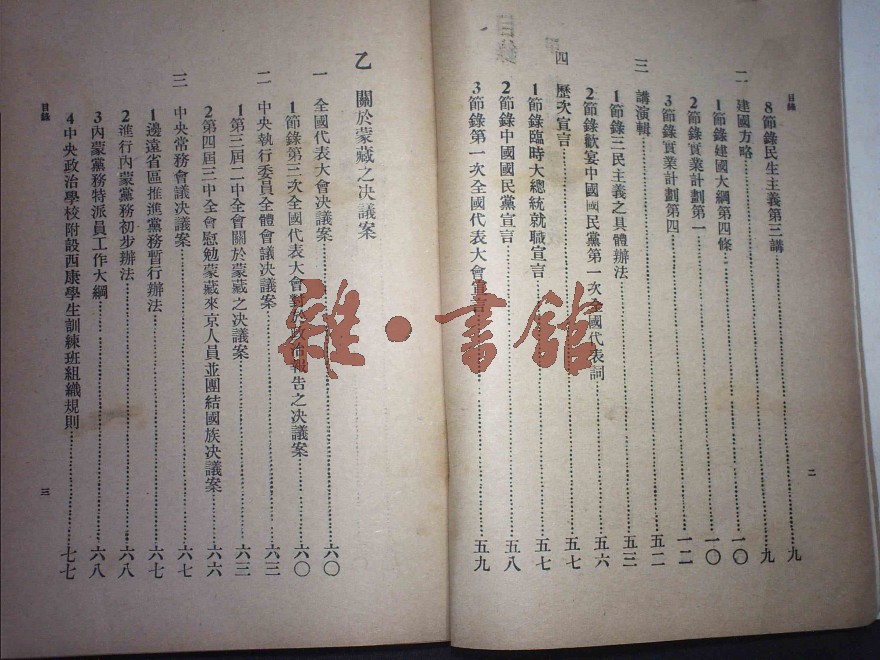 目錄
8節錄民生主義第三講……九
二 建國方略……一〇
1節錄建國大綱第四條……一〇
2節錄實業計劃第一……一二
3節錄實業計劃第四……五二
三 講演輯……五三
1節錄三民主義之具體辦法……五三
2節錄歡宴中國國民黨第一次全國代表詞……五六
四 歷次宣言……五七
1節錄臨時大總統就職宣言……五七
2節錄中國國民黨宣言……五八
3節錄第一次全國代表大會宣言……五九
二
乙 關於蒙藏之決議案
一 全國代表大會決議案……六〇
1節錄第三次全國代表大會對於政治報告之決議案……六〇
二 中央執行委員全體會議決議案……六三
1第三屆二中全會關於蒙藏之決議案……六三
2第四屆三中全會慰勉蒙藏來京人員並團結國族決議案……六六
三 中央常務會議決議案……六七
1邊遠省區推進黨務暫行辦法……六七
2進行內蒙黨務初步辦法……六八
3內蒙黨務特派員工作大綱……六八
4中央政治學校附設西康學生訓練班組織規則……七七
目錄
三
雜·書館